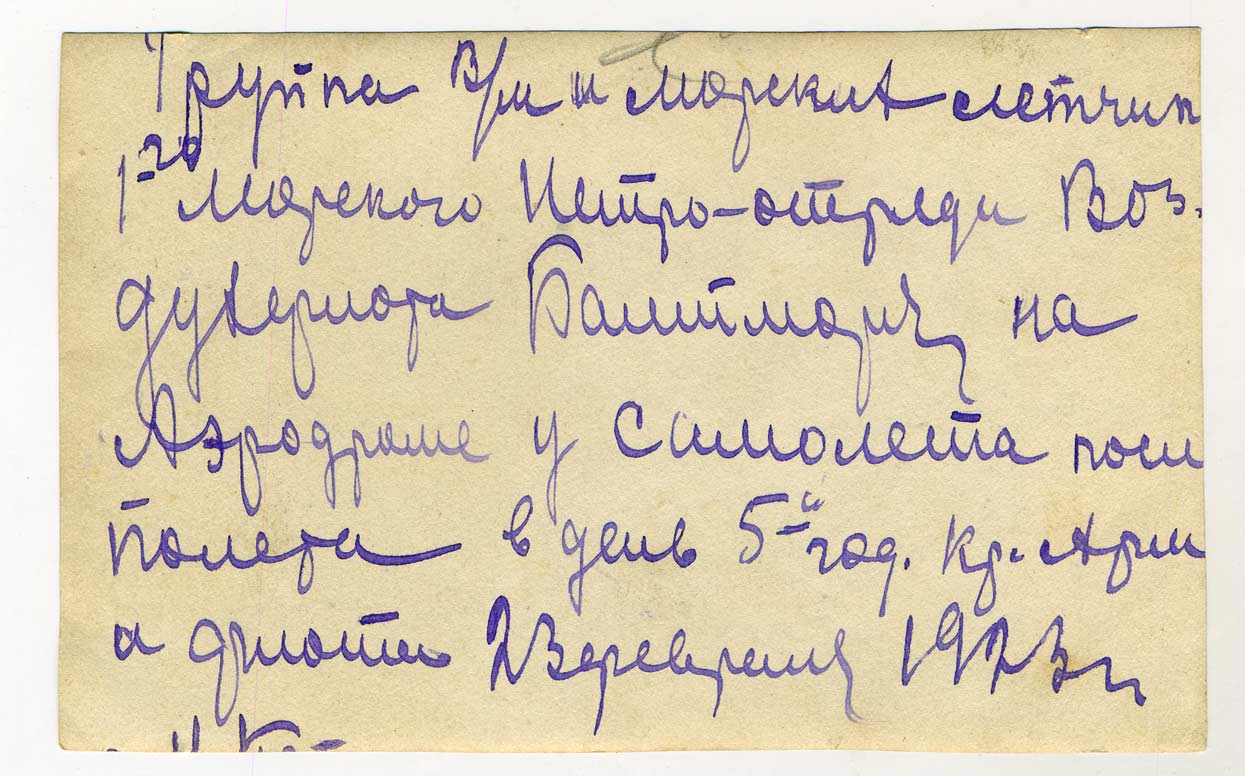 Группа В/м и морских летчик
1-го морского Истро-отряда Воз.
духфлота Балтморя на
Аэродроме у Самолета посл
полета в день 5-й год. Кр. Арми
и флота 23 февраля 1923 г